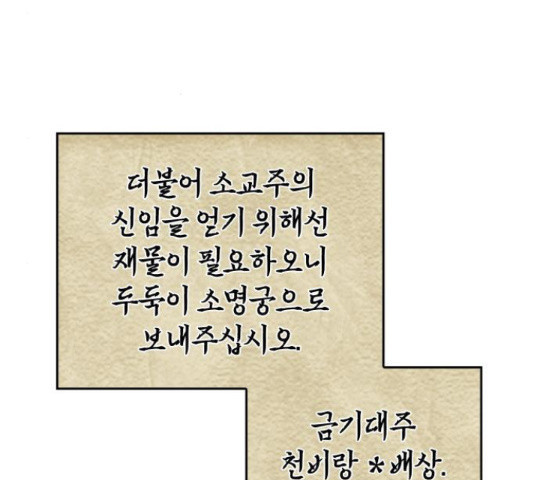 더불어 소교주의
신임을 얻기 위해선
재물이 필요하오니
두둑이 소명궁으로
보내주십시오.
금기대주
천비랑 *배상.